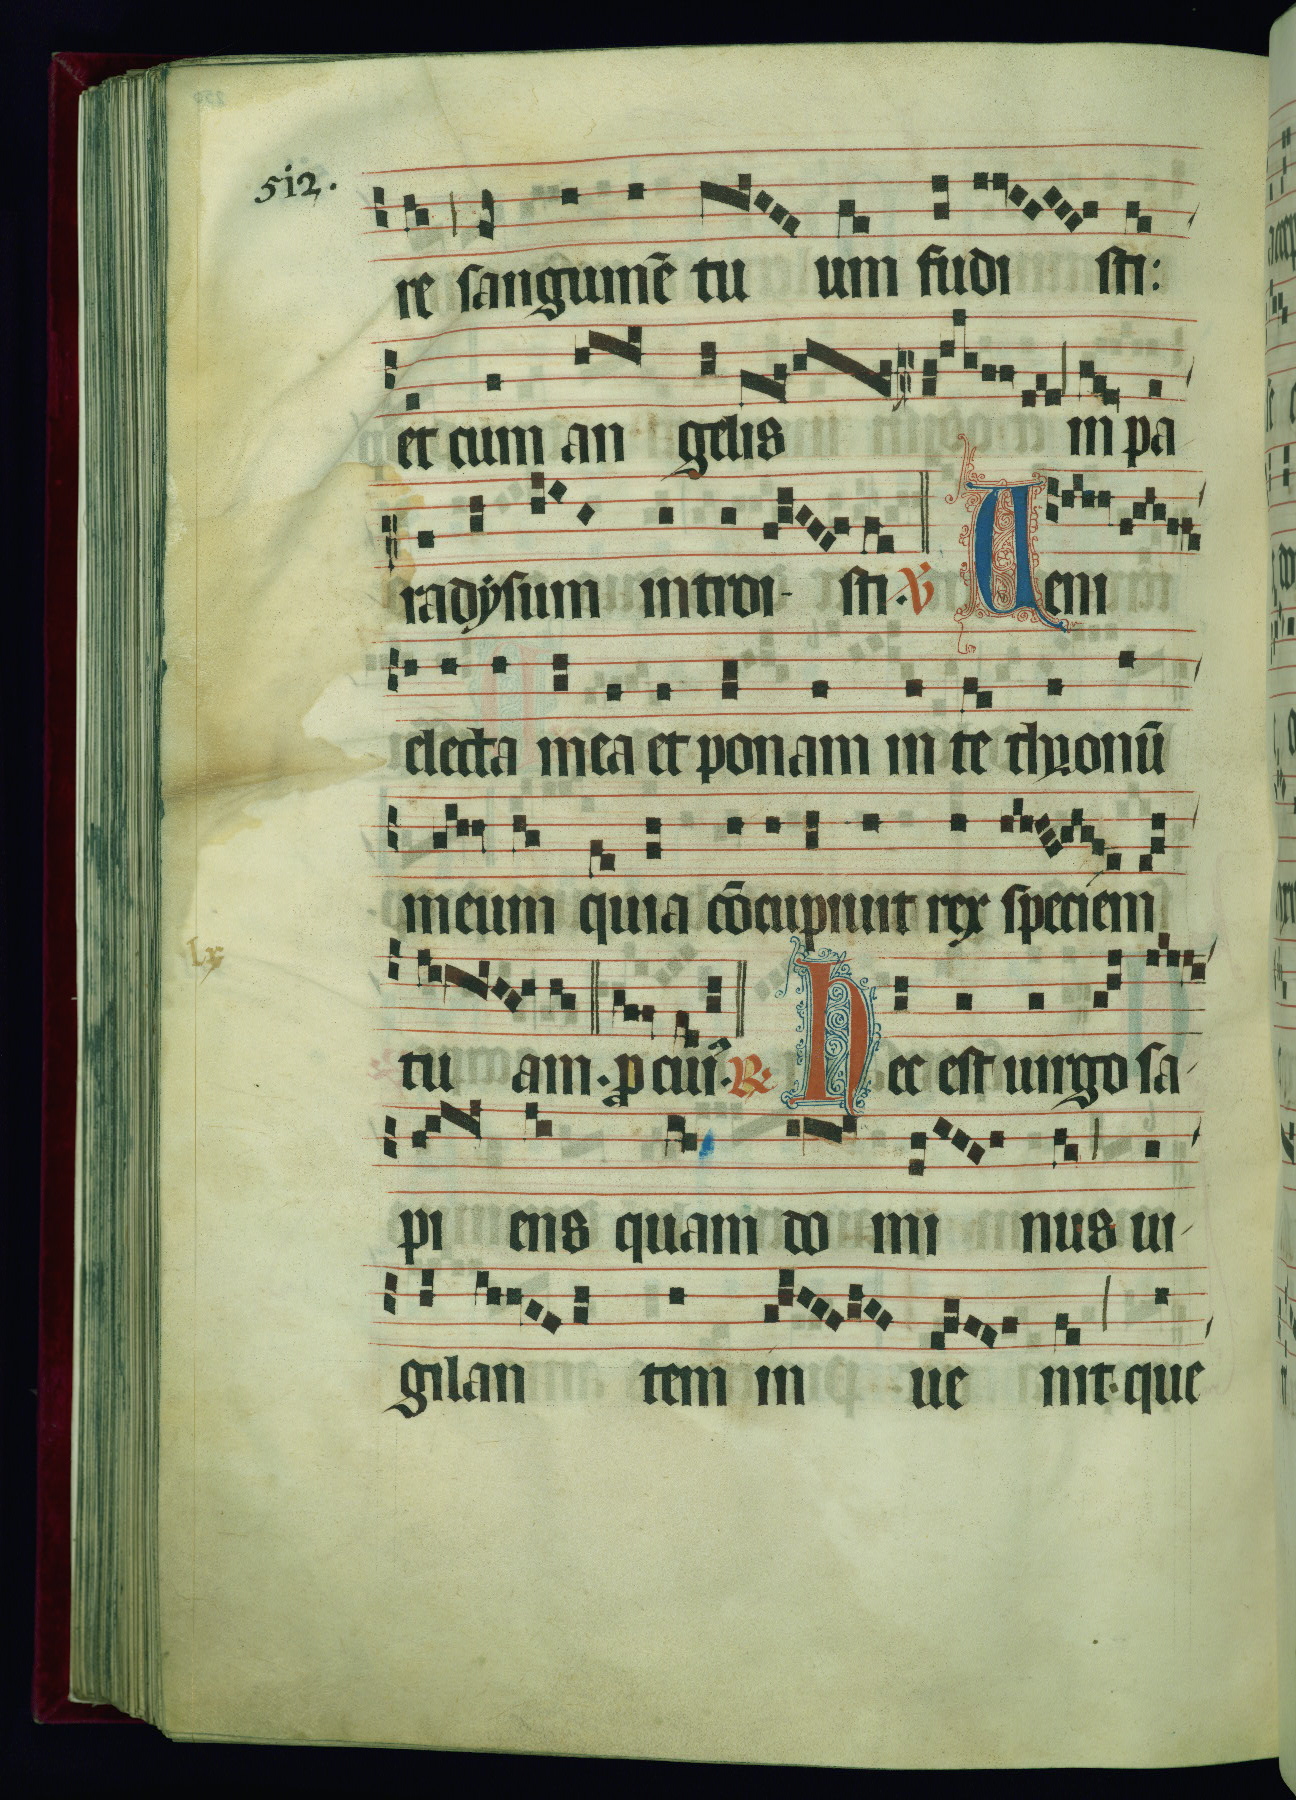 512.
re sanguinē tu um fudi sti:
et cum an gelis in pa
radysum introi- sti. ℣ Ueni
electa mea et ponam in te thronū
meum quia cōcupiuit rex speciem
tu am. ꝑ ciuī. ℟ hec est uirgo sa-
pi ens quam do mi nus ui-
gilan tem in ue nit. que